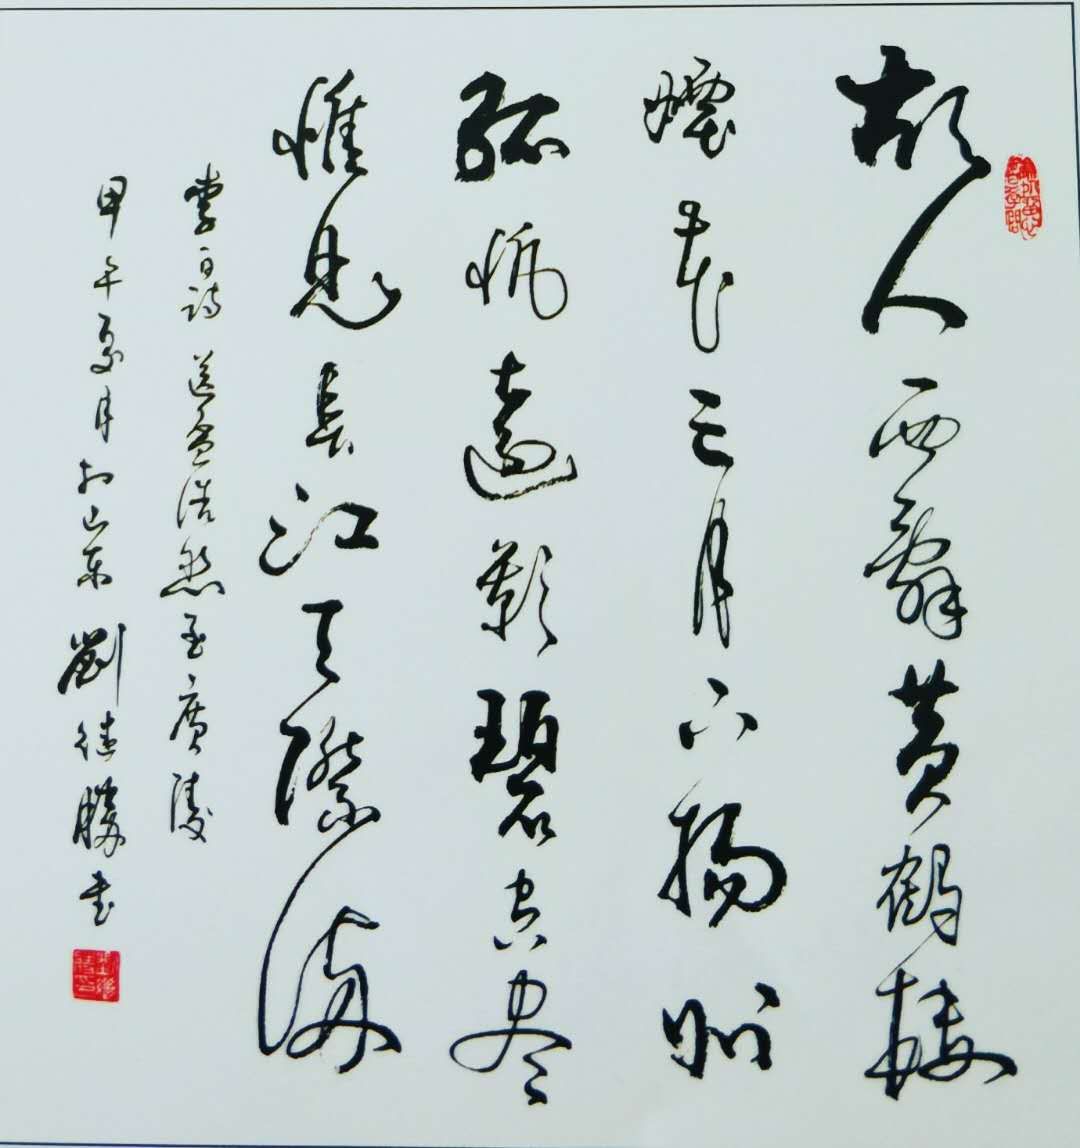 故人西辭黄鶴楼
煙花三月下揚州
孤帆遠影碧空尽
惟見長江天際流
李白詩 送孟浩然至廣陵
甲午夏月於山东 劉德勝书